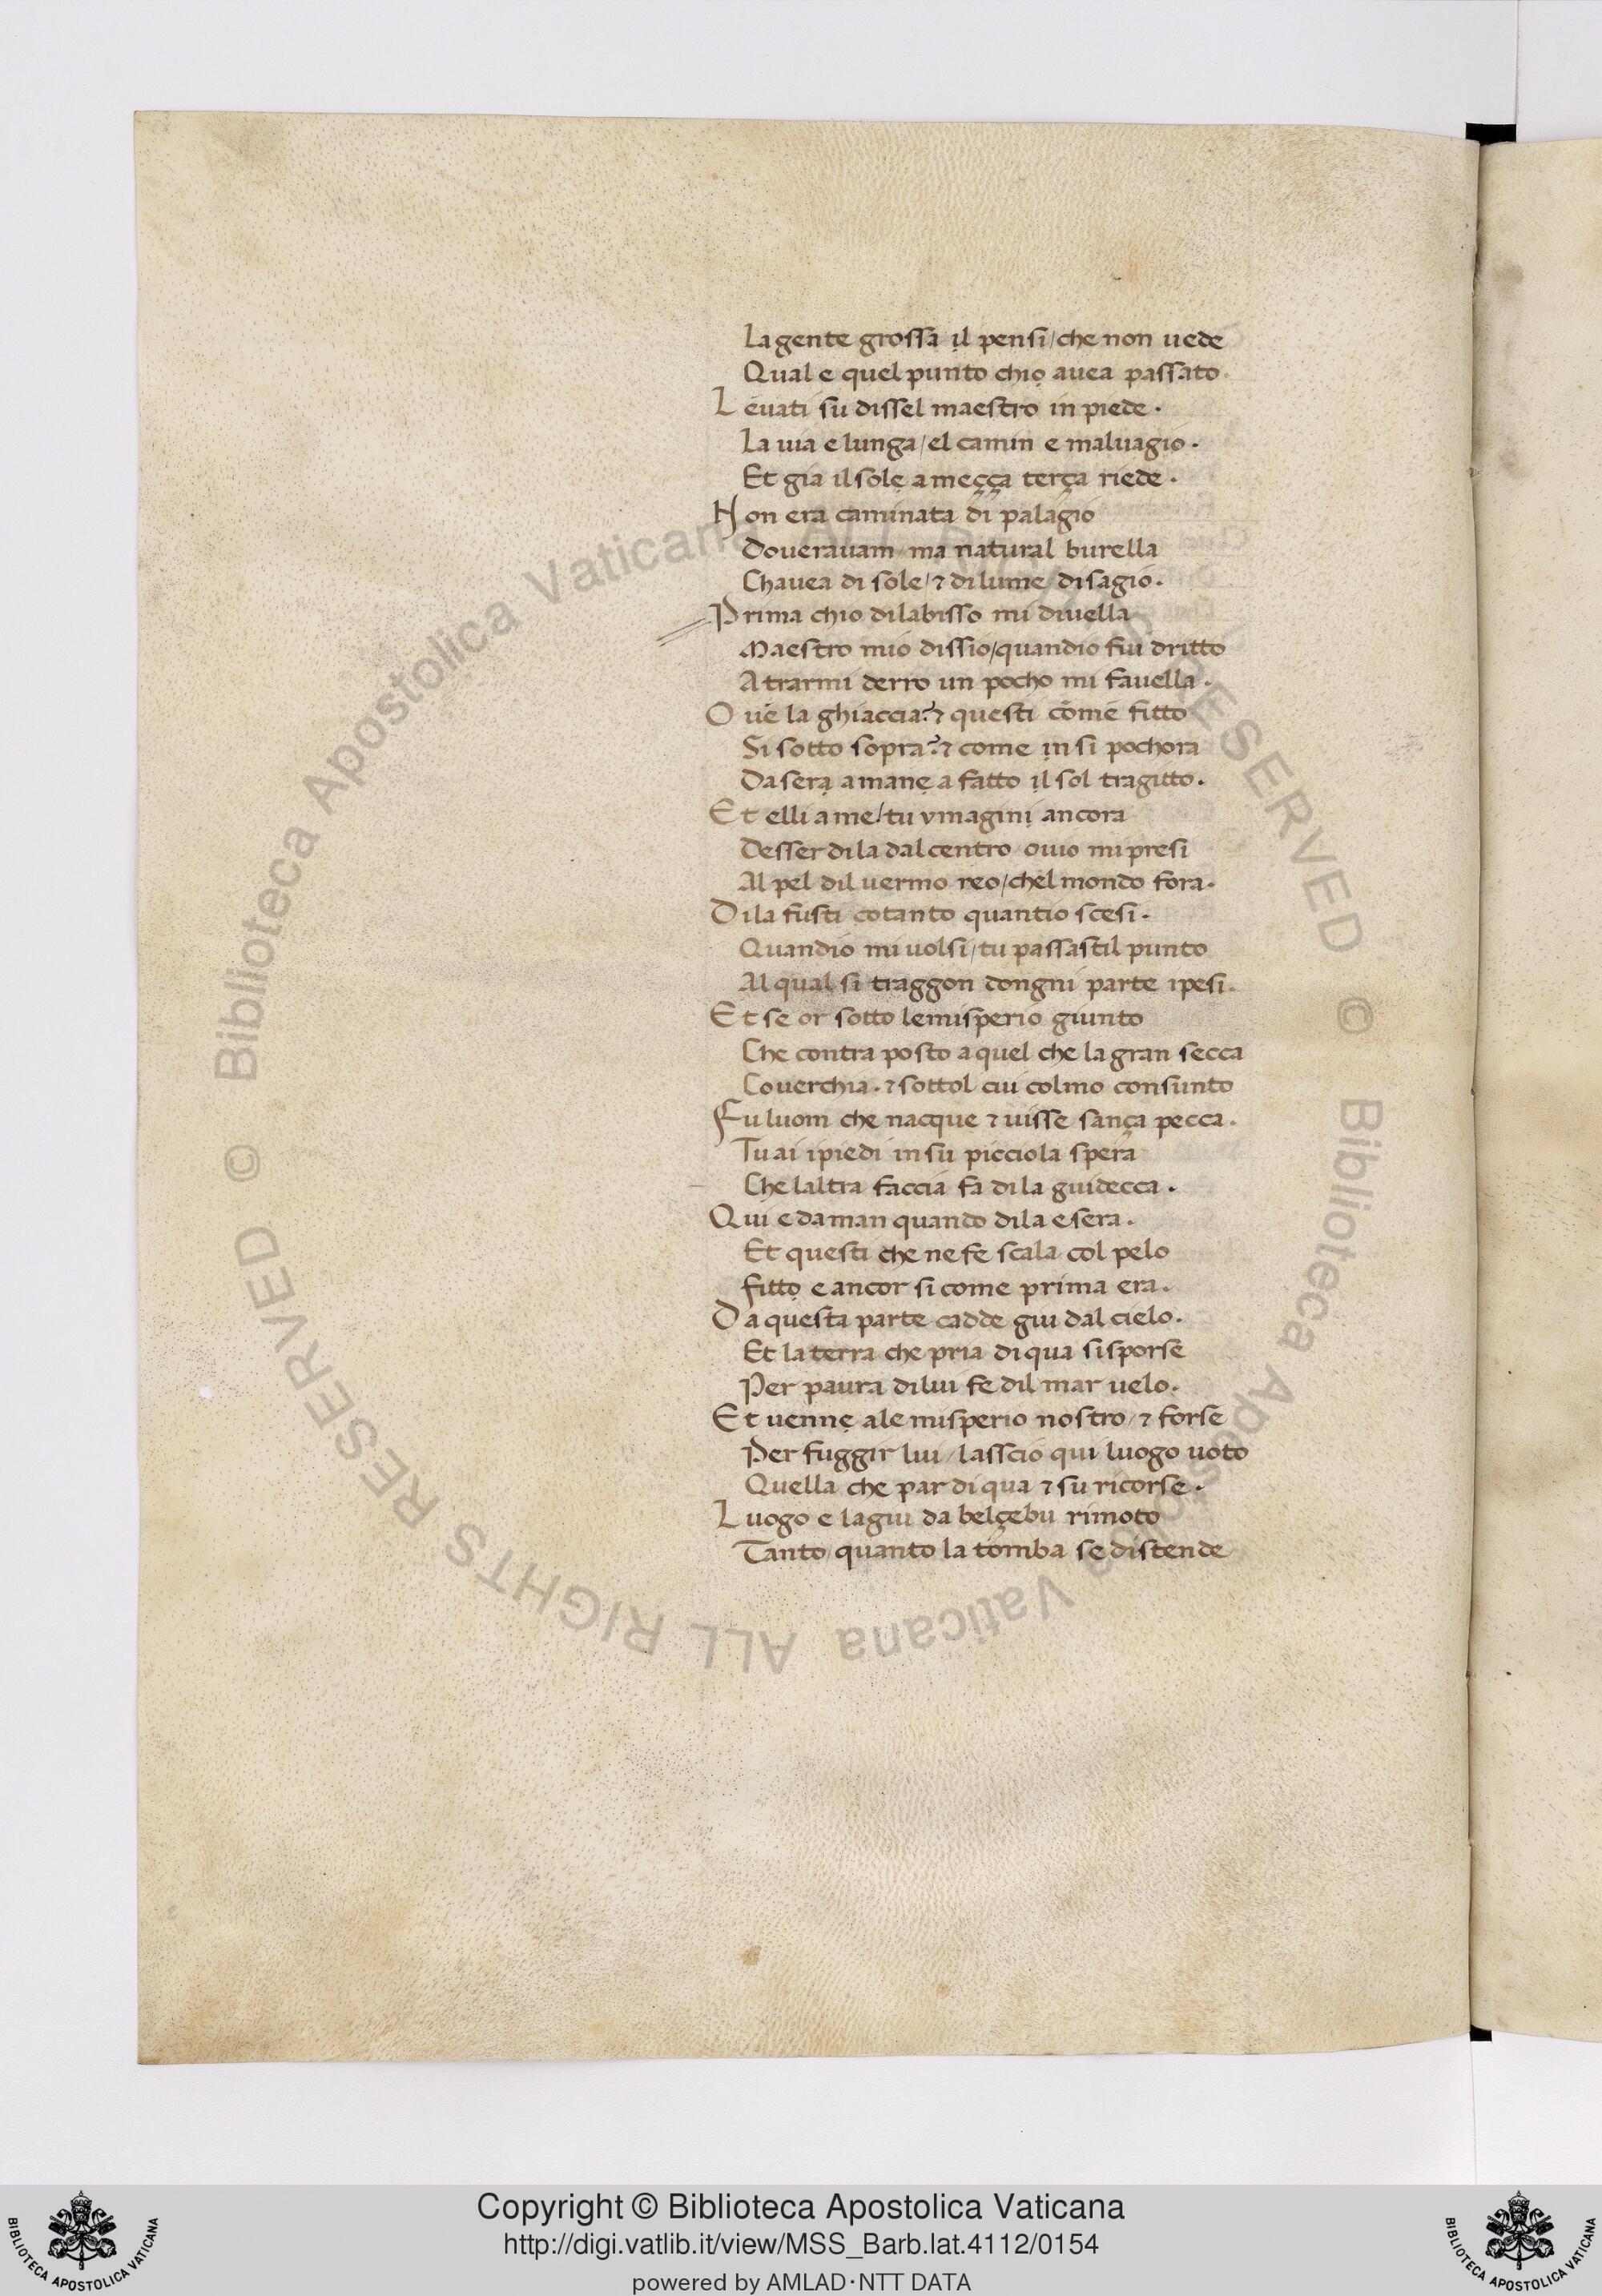 La gente grossa il pensi / che non uede
Qual e quel punto chio auea passato.
Leuati su dissel maestro in piede.
La uia e lunga / el camin e maluagio.
Et gia il sole a meçça terça riede.
Non era caminata di palagio
Douerauam / ma natural burella
Chauea di sole / ⁊ di lume disagio.
Prima chio dilabisso mi diuella
Maestro mio dissio / quandio fui dritto
A trarmi derro un pocho mi fauella.
Oue la ghiaccia? ⁊ questi come fitto
Si sotto sopra? ⁊ come in si pochora
Da sera a mane a fatto il sol tragitto.
Et elli a me / tu ymagini ancora
Desser di la dal centro / ouio mi presi
Al pel dil uermo reo / chel mondo fora.
Di la fusti cotanto quantio scesi.
Quandio mi uolsi / tu passastil punto
Al qual si traggon dongni parte ipesi.
Et se or sotto lemisperio giunto
Che contra posto a quel che la gran secca
Couerchia. ⁊ sottol cui colmo consunto
Fu luom che nacque ⁊ uisse sança pecca.
Tu ai ipiedi in su picciola spera
Che laltra faccia fa di la guidecca.
Qui e da man quando di la e sera.
Et questi che ne fe scala col pelo
fitto e ancor si come prima era.
Da questa parte cadde giu dal cielo.
Et la terra che pria di qua si sporse
Per paura di lui fe dil mar uelo.
Et uenne a lemisperio nostro / ⁊ forse
Per fuggir lui / lasscio qui luogo uoto
Quella che par di qua ⁊ su ricorse.
Luogo e lagiu da belçebu rimoto
Tanto / quanto la tomba se distende
© Biblioteca Apostolica Vaticana ALL RIGHTS RESERVED © Biblioteca Apostolica Vaticana ALL RIGHTS RESERVED
Copyright © Biblioteca Apostolica Vaticana
http://digi.vatlib.it/view/MSS_Barb.lat.4112/0154
powered by AMLAD·NTT DATA
BIBLIOTECA APOSTOLICA VATICANA
BIBLIOTECA APOSTOLICA VATICANA